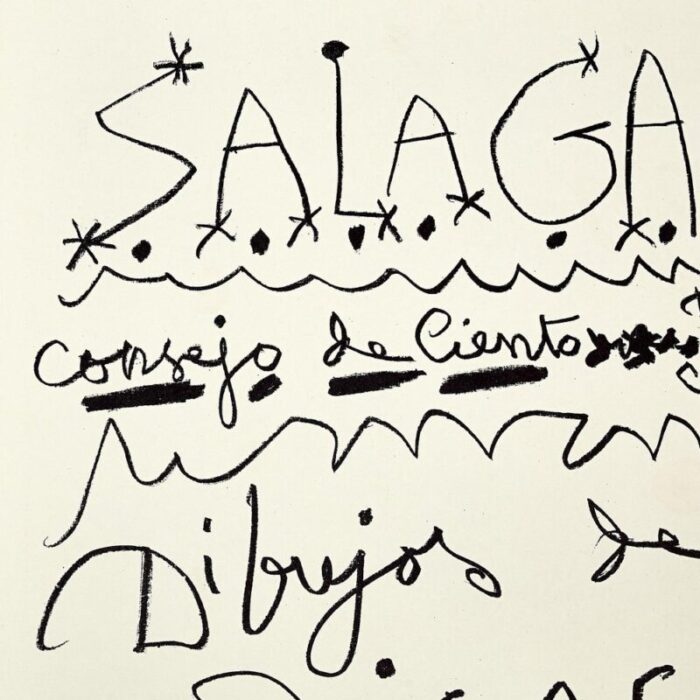 SALAGA
consejo de Ciento
Dibujos de